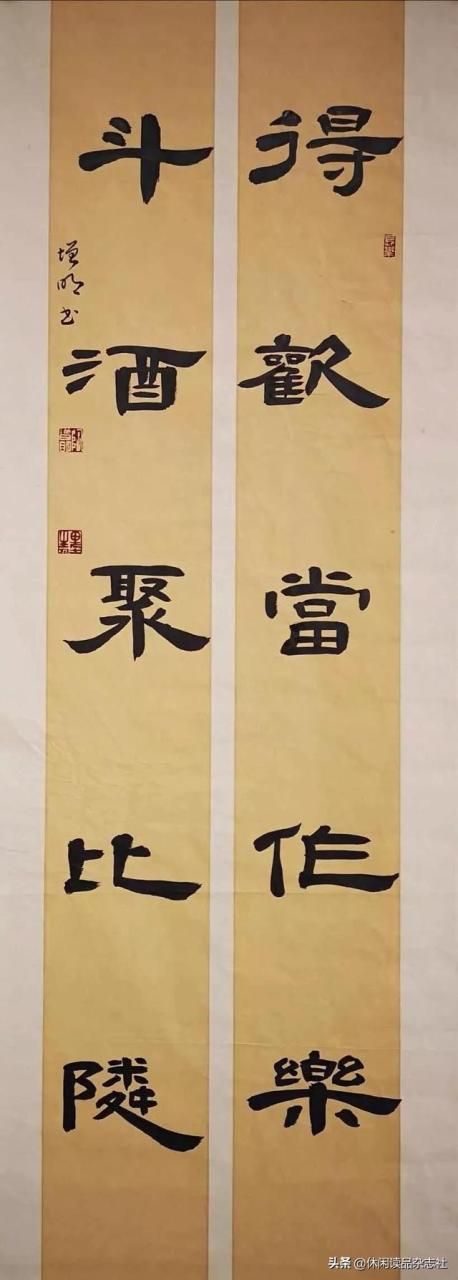 得歡當作樂
斗酒聚比隣
增明书
头条 @休闲读品杂志社